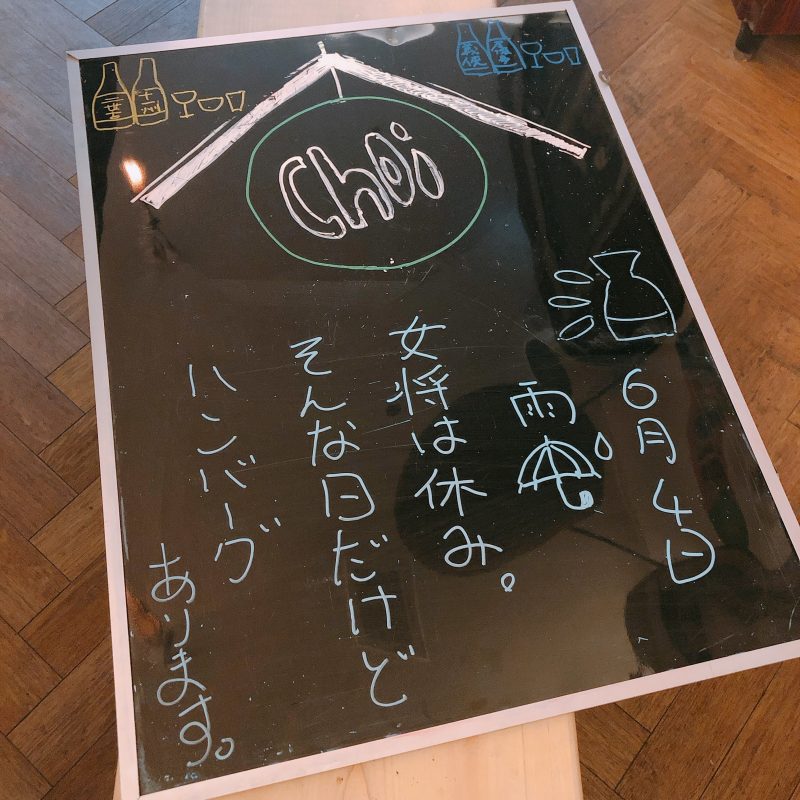 Choi
6月4日
雨
女将は休み。
そんな日だけど
ハンバーグ
あります。
十州
義侠